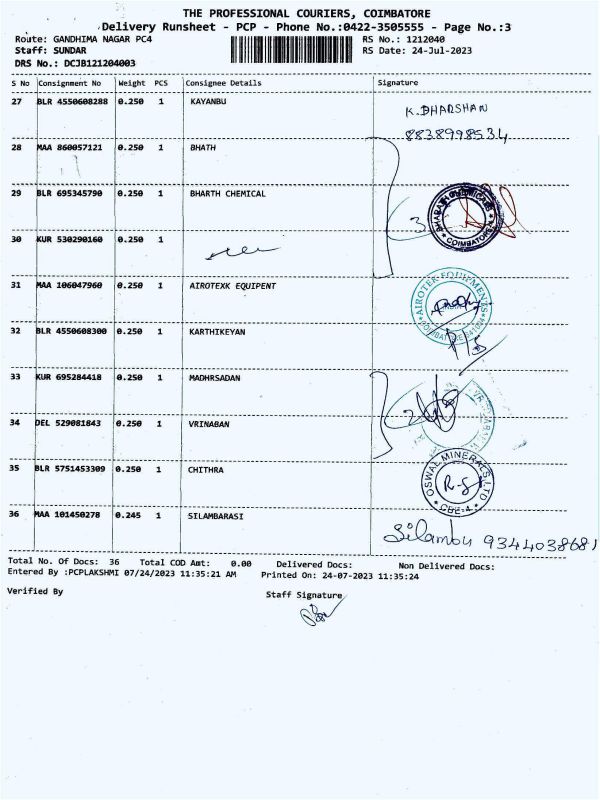 THE PROFESSIONAL COURIERS, COIMBATORE
Delivery Runsheet - PCP - Phone No.:0422-3505555 - Page No.:3
Route: GANDHIMA NAGAR PC4 RS No.: 1212040
Staff: SUNDAR RS Date: 24-Jul-2023
DRS No.: DCJB121204003
S No Consignment No Weight PCS Consignee Details Signature
27 BLR 4550608288 0.250 1 KAYANBU
K.DHARSHAN
8838998534
28 MAA 860057121 0.250 1 BHATH
29 BLR 695345790 0.250 1 BHARTH CHEMICAL
3
COIMBATORE
30 KUR 530290160 0.250 1
31 MAA 106047960 0.250 1 AIROTEXK EQUIPENT
AIROTEK EQUIPMENTS
32 BLR 4550608300 0.250 1 KARTHIKEYAN
33 KUR 695284418 0.250 1 MADHRSADAN
34 DEL 529081843 0.250 1 VRINABAN
35 BLR 5751453309 0.250 1 CHITHRA
OSWAL MINERALS LTD
CBE-4
36 MAA 101450278 0.245 1 SILAMBARASI
Silambu 9344038681
Total No. Of Docs: 36 Total COD Amt: 0.00 Delivered Docs: Non Delivered Docs:
Entered By :PCPLAKSHMI 07/24/2023 11:35:21 AM Printed On: 24-07-2023 11:35:24
Verified By Staff Signature